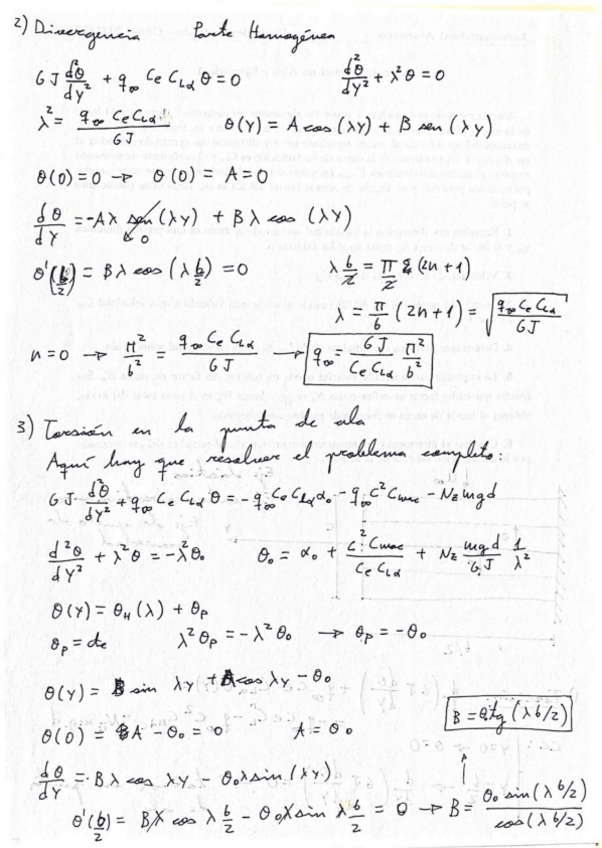 2) Divergencia Parte Homogénea
GJ d²θ/dy² + q∞ C e C_Lα θ = 0 d²θ/dy² + λ²θ = 0
λ² = q∞ C e C_Lα / GJ θ(y) = A cos(λy) + B sen(λy)
θ(0) = 0 → θ(0) = A = 0
dθ/dy = -Aλ sen(λy) + Bλ cos(λy)
0
θ'(b/2) = Bλ cos(λ b/2) = 0 λ b/2 = π/2 (2n+1)
λ = π/b (2n+1) = √(q∞ C e C_Lα / GJ)
n = 0 → π²/b² = q∞ C e C_Lα / GJ → q∞ = GJ / C e C_Lα π²/b²
3) Torsión en la punta de ala
Aquí hay que resolver el problema completo:
GJ d²θ/dy² + q∞ C e C_Lα θ = -q∞ C e C_Lα α₀ - q∞ C² C_mac - N_z m g d
d²θ/dy² + λ²θ = -λ²θ₀ θ₀ = α₀ + C² C_mac / C e C_Lα + N_z mgd/GJ 1/λ²
θ(y) = θ_H(λ) + θ_P
θ_P = cte λ²θ_P = -λ²θ₀ → θ_P = -θ₀
θ(y) = B sin λy + A cos λy - θ₀
B = θ₀ tg(λ b/2)
θ(0) = A - θ₀ = 0 A = θ₀
dθ/dy = Bλ cos λy - θ₀ λ sin(λy)
θ'(b/2) = Bλ cos λ b/2 - θ₀ λ sin λ b/2 = 0 → B = θ₀ sin(λ b/2) / cos(λ b/2)